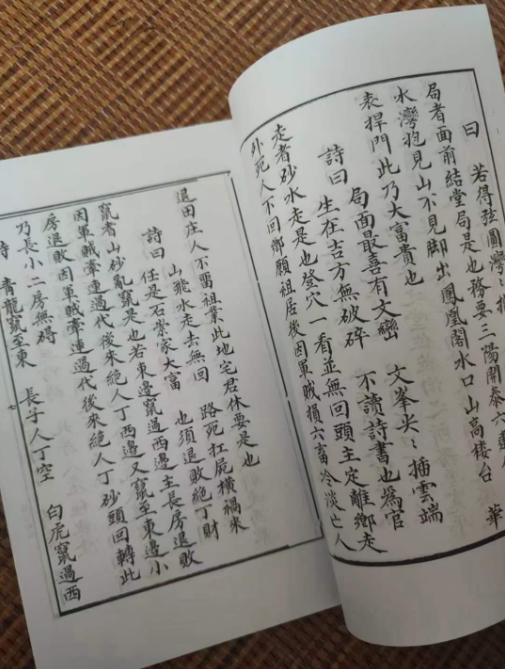 曰 若得弦圓灣〻抱
局者面前結堂局是也務要三陽開泰六建
水灣抱見山不見脚出鳳凰閣水口山高樓台華
表捍門此乃大富貴也
局面最喜有文巒 文峯尖〻插雲端
詩曰 生在吉方無破碎 不讀詩書也為官
走者砂水走是也登穴一看並無回頭主定離鄉走
外死人不回鄉願祖居後因軍賊損六畜冷淡亡人
退田庄人不畱祖業此地宅君休要是也
山飛水走去無回 路死扛屍橫禍來
詩曰 任是石崇家大富 也須退敗絕丁財
竄者山砂亂竄是也若東邊竄過西邊主長房退敗
因軍賊牽連過代後來絕人丁西邊又竄至東邊小
房退敗因軍賊牽連過代後來絕人丁砂頭回轉此
乃長小二房無碍
詩 青龍竄至東 長子人丁空 白虎竄過西